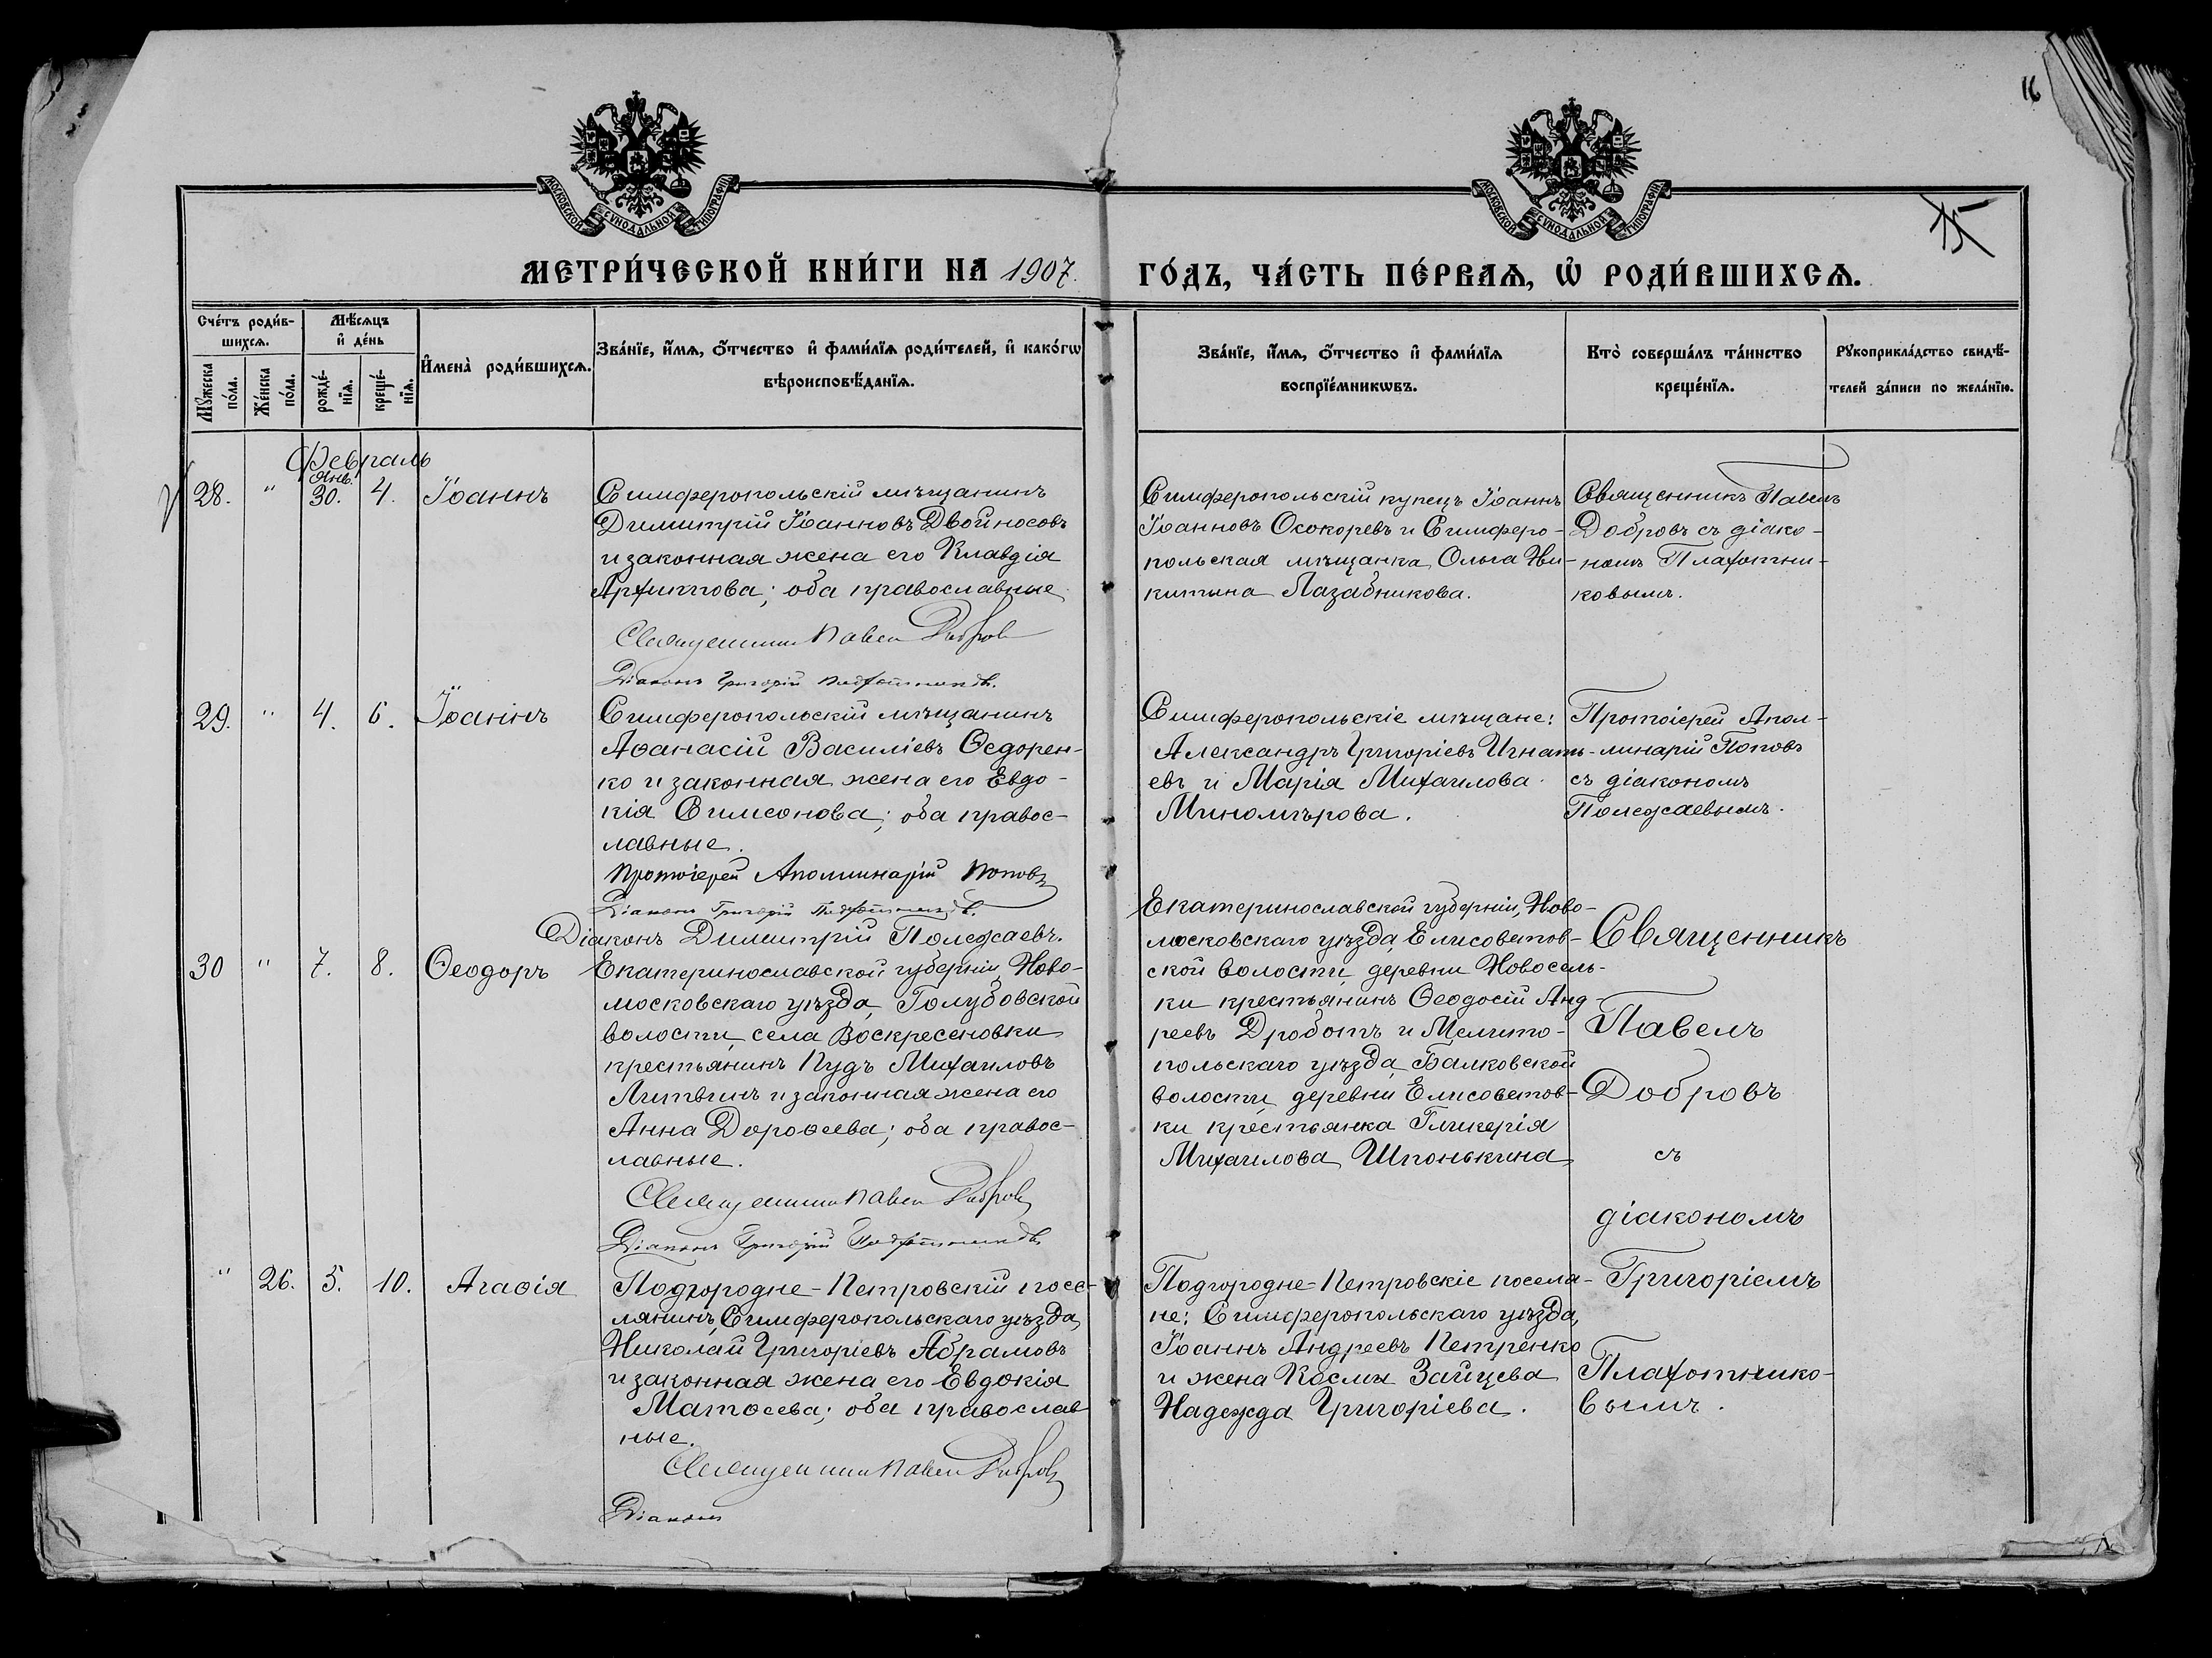 16
МОСКОВСКОЙ СѴНОДАЛЬНОЙ ТИПОГРАФІИ
МОСКОВСКОЙ СѴНОДАЛЬНОЙ ТИПОГРАФІИ
МЕТРИ́ЧЕСКОЙ КНИ́ГИ НА 1907.
ГО́ДЪ, ЧА́СТЬ ПЕ́РВАѦ, Ѡ҆ РОДИ́ВШИХСѦ.
Сче́тъ роди́в-
шихсѧ.
Мꙋ́жеска
по́ла.
Же́нска
по́ла.
Мѣ́сѧцъ
и҆ де́нь
рожде́-
нїѧ.
креще́-
нїѧ.
И҆мена̀ роди́вшихсѧ.
Зва́нїе, и҆́мѧ, ѻ҆́тчество и҆ фами́лїѧ роди́телей, и҆ како́гѡ
вѣроисповѣ́данїѧ.
Зва́нїе, и҆́мѧ, ѻ҆́тчество и҆ фами́лїѧ
воспрїе́мникѡвъ.
Кто̀ соверша́лъ та́инство
креще́нїѧ.
Рꙋкоприкла́дство свидѣ́-
телей за́писи по жела́нїю.
Февраль
28. " Янв. 30. 4. Іоаннъ
Симферопольскій мѣщанинъ
Димитрій Іоанновъ Двойносовъ
и законная жена его Клавдія
Архиппова; оба православные
Священникъ Павелъ Добровъ
Діаконъ Григорій Плахотниковъ.
Симферопольскій купецъ Іоаннъ
Іоанновъ Осокоревъ и Симферо-
польская мѣщанка Ольга Ни-
китина Лазабникова.
Священникъ Павелъ
Добровъ съ діако-
номъ Плахотни-
ковымъ.
29. " 4. 6. Іоаннъ
Симферопольскій мѣщанинъ
Аѳанасій Василіевъ Ѳедорен-
ко и законная жена его Евдо-
кія Симеонова; оба правос-
лавные.
Протоіерей Аполлинарій Поповъ
Діаконъ Григорій Плахотниковъ.
Діаконъ Димитрій Полежаевъ.
Симферопольскіе мѣщане:
Александръ Григоріевъ Игнать-
евъ и Марія Михаилова
Миномѣрова.
Протоіерей Апол-
линарій Поповъ
съ діакономъ
Полежаевымъ.
30 " 7. 8. Ѳеодоръ
Екатеринославской губерніи, Ново-
московскаго уѣзда, Голубовской
волости, села Воскресеновки
крестьянинъ Пудъ Михаиловъ
Литвинъ и законная жена его
Анна Дороѳеева; оба правос-
лавные.
Священникъ Павелъ Добровъ
Діаконъ Григорій Плахотниковъ
Екатеринославской губерніи, Ново-
московскаго уѣзда, Елисоветов-
ской волости, деревни Новосель-
ки крестьянинъ Ѳеодосій Анд-
реевъ Дроботъ и Мелито-
польскаго уѣзда, Балковской
волости, деревни Елисоветов-
ки крестьянка Гликерія
Михаилова Шпонькина
Священникъ
Павелъ
Добровъ
съ
діакономъ
Григоріемъ
Плахотнико-
вымъ.
" 26. 5. 10. Агаѳія
Подгородне-Петровскій посе-
лянинъ, Симферопольскаго уѣзда,
Николай Григоріевъ Абрамовъ
и законная жена его Евдокія
Матѳеева; оба православ
ные.
Священникъ Павелъ Добровъ
Діаконъ
Подгородне-Петровскіе поселя-
не: Симферопольскаго уѣзда,
Іоаннъ Андреевъ Петренко
и жена Космы Зайцева
Надежда Григоріева.